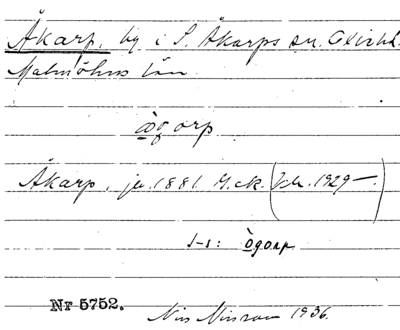 Åkarp, by i S. Åkarps sn. Oxie hd.
Malmöhus län.
ògorp
Åkarp, jv. 1881. G.ek. (Jvh. 1929 —.)
s-s: ògorp
Nr 5752.
Nils Nilsson 1936.